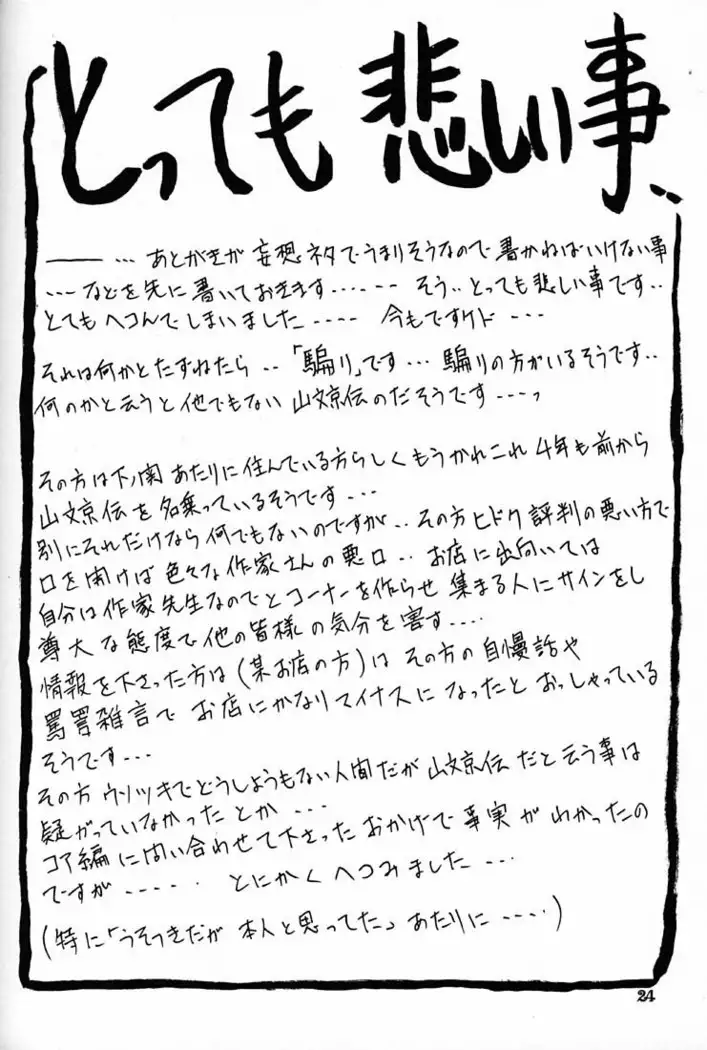 とっても悲しい事..
――― … あとがきが 妄想ネタでうまりそうなので 書かねばいけない事
--- などを先に書いておきます…--- そう.. とっても悲しい事です..
とてもヘコんでしまいました ---- 今もですケド ---
それは何かとたずねたら ..「騙り」です… 騙りの方がいるそうです..
何のかと云うと他でもない 山文京伝のだそうです ----っ
その方は下ノ関 あたりに住んでいる方らしくもうかれこれ 4年も前から
山文京伝を名乗っているそうです ---
別にそれだけなら何でもないのですが.. その方ヒドク評判の悪い方で
口を開けば 色々な作家さんの悪口 .. お店に出向いては
自分は作家先生なのでとコーナーを作らせ 集まる人にサインをし
尊大な態度で他の皆様の気分を害す....
情報を下さった方は(某お店の方)は その方の自慢話や
罵詈雑言で お店にかなりマイナスに なったと おっしゃっている
そうです---
その方 ウソツキでどうしようもない人間だが 山文京伝だと云う事は
疑がっていなかったとか ---
コア編に問い合わせて下さった おかげで 事実が わかったの
ですが ----. とにかく へコみました ---
(特に「うそつきだが 本人と思ってた」あたりに ----)
24